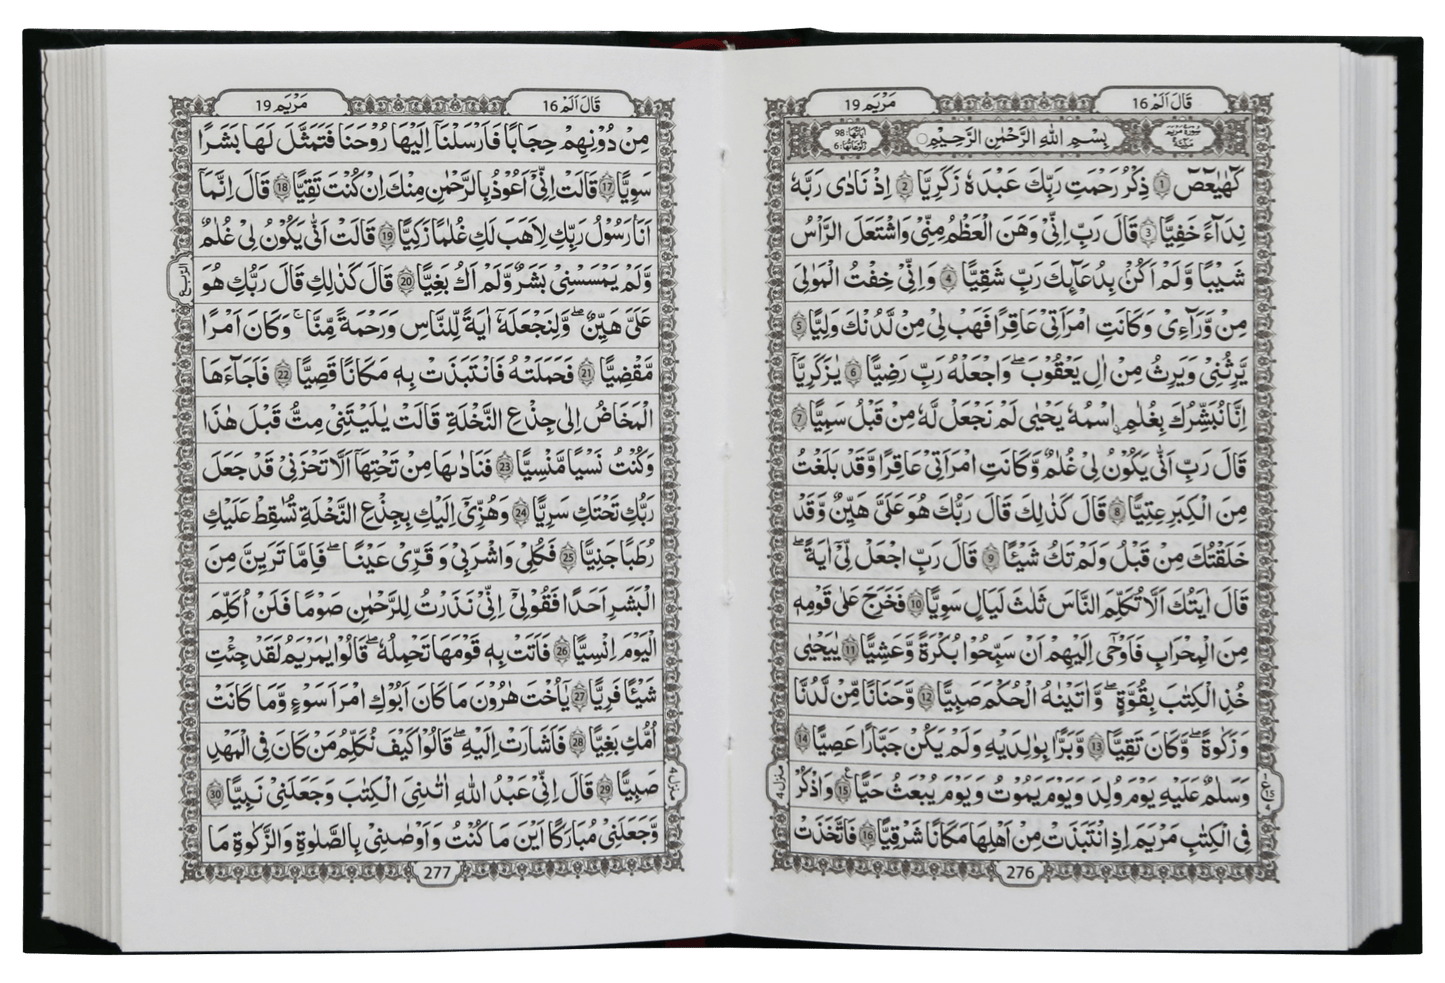 قَالَ اَلَمْ 16
مَرْيَم 19
سُوْرَةُ مَرْيَمَ مَكِّيَّةٌ
بِسْمِ اللّٰهِ الرَّحْمٰنِ الرَّحِيْمِ
اٰيَاتُهَا: 98 رُكُوْعَاتُهَا: 6
كٓهٰيٰعٓصٓ ۝1 ذِكْرُ رَحْمَتِ رَبِّكَ عَبْدَهٗ زَكَرِيَّا ۝2 اِذْ نَادٰى رَبَّهٗ
نِدَآءً خَفِيًّا ۝3 قَالَ رَبِّ اِنِّيْ وَهَنَ الْعَظْمُ مِنِّيْ وَاشْتَعَلَ الرَّاْسُ
شَيْبًا وَّلَمْ اَكُنْۢ بِدُعَآئِكَ رَبِّ شَقِيًّا ۝4 وَاِنِّيْ خِفْتُ الْمَوٰلِيَ
مِنْ وَّرَآءِيْ وَكَانَتِ امْرَاَتِيْ عَاقِرًا فَهَبْ لِيْ مِنْ لَّدُنْكَ وَلِيًّا ۝5
يَّرِثُنِيْ وَيَرِثُ مِنْ اٰلِ يَعْقُوْبَ ۖ وَاجْعَلْهُ رَبِّ رَضِيًّا ۝6 يٰزَكَرِيَّآ
اِنَّا نُبَشِّرُكَ بِغُلٰمِ ۨاسْمُهٗ يَحْيٰى لَمْ نَجْعَلْ لَّهٗ مِنْ قَبْلُ سَمِيًّا ۝7
قَالَ رَبِّ اَنّٰى يَكُوْنُ لِيْ غُلٰمٌ وَّكَانَتِ امْرَاَتِيْ عَاقِرًا وَّقَدْ بَلَغْتُ
مِنَ الْكِبَرِ عِتِيًّا ۝8 قَالَ كَذٰلِكَ قَالَ رَبُّكَ هُوَ عَلَيَّ هَيِّنٌ وَّقَدْ
خَلَقْتُكَ مِنْ قَبْلُ وَلَمْ تَكُ شَيْـًٔا ۝9 قَالَ رَبِّ اجْعَلْ لِّيْٓ اٰيَةً ۖ
قَالَ اٰيَتُكَ اَلَّا تُكَلِّمَ النَّاسَ ثَلٰثَ لَيَالٍ سَوِيًّا ۝10 فَخَرَجَ عَلٰى قَوْمِهٖ
مِنَ الْمِحْرَابِ فَاَوْحٰٓى اِلَيْهِمْ اَنْ سَبِّحُوْا بُكْرَةً وَّعَشِيًّا ۝11 يٰيَحْيٰى
خُذِ الْكِتٰبَ بِقُوَّةٍ ۖ وَاٰتَيْنٰهُ الْحُكْمَ صَبِيًّا ۝12 وَّحَنَانًا مِّنْ لَّدُنَّا
وَزَكٰوةً ۖ وَّكَانَ تَقِيًّا ۝13 وَّبَرًّا بِوٰلِدَيْهِ وَلَمْ يَكُنْ جَبَّارًا عَصِيًّا ۝14
وَسَلٰمٌ عَلَيْهِ يَوْمَ وُلِدَ وَيَوْمَ يَمُوْتُ وَيَوْمَ يُبْعَثُ حَيًّا ۝15 وَاذْكُرْ
فِى الْكِتٰبِ مَرْيَمَ اِذِ انْتَبَذَتْ مِنْ اَهْلِهَا مَكَانًا شَرْقِيًّا ۝16 فَاتَّخَذَتْ
منزل 4
276
قَالَ اَلَمْ 16
مَرْيَم 19
مِنْ دُوْنِهِمْ حِجَابًا فَاَرْسَلْنَآ اِلَيْهَا رُوْحَنَا فَتَمَثَّلَ لَهَا بَشَرًا
سَوِيًّا ۝17 قَالَتْ اِنِّيْٓ اَعُوْذُ بِالرَّحْمٰنِ مِنْكَ اِنْ كُنْتَ تَقِيًّا ۝18 قَالَ اِنَّمَآ
اَنَا رَسُوْلُ رَبِّكِ لِاَهَبَ لَكِ غُلٰمًا زَكِيًّا ۝19 قَالَتْ اَنّٰى يَكُوْنُ لِيْ غُلٰمٌ
وَّلَمْ يَمْسَسْنِيْ بَشَرٌ وَّلَمْ اَكُ بَغِيًّا ۝20 قَالَ كَذٰلِكِ قَالَ رَبُّكِ هُوَ
عَلَيَّ هَيِّنٌ ۖ وَلِنَجْعَلَهٗٓ اٰيَةً لِّلنَّاسِ وَرَحْمَةً مِّنَّا ۚ وَكَانَ اَمْرًا
مَّقْضِيًّا ۝21 فَحَمَلَتْهُ فَانْتَبَذَتْ بِهٖ مَكَانًا قَصِيًّا ۝22 فَاَجَآءَهَا
الْمَخَاضُ اِلٰى جِذْعِ النَّخْلَةِ قَالَتْ يٰلَيْتَنِيْ مِتُّ قَبْلَ هٰذَا
وَكُنْتُ نَسْيًا مَّنْسِيًّا ۝23 فَنَادٰىهَا مِنْ تَحْتِهَآ اَلَّا تَحْزَنِيْ قَدْ جَعَلَ
رَبُّكِ تَحْتَكِ سَرِيًّا ۝24 وَهُزِّيْٓ اِلَيْكِ بِجِذْعِ النَّخْلَةِ تُسٰقِطْ عَلَيْكِ
رُطَبًا جَنِيًّا ۝25 فَكُلِيْ وَاشْرَبِيْ وَقَرِّيْ عَيْنًا ۖ فَاِمَّا تَرَيِنَّ مِنَ
الْبَشَرِ اَحَدًا فَقُوْلِيْٓ اِنِّيْ نَذَرْتُ لِلرَّحْمٰنِ صَوْمًا فَلَنْ اُكَلِّمَ
الْيَوْمَ اِنْسِيًّا ۝26 فَاَتَتْ بِهٖ قَوْمَهَا تَحْمِلُهٗ ۖ قَالُوْا يٰمَرْيَمُ لَقَدْ جِئْتِ
شَيْـًٔا فَرِيًّا ۝27 يٰٓاُخْتَ هٰرُوْنَ مَا كَانَ اَبُوْكِ امْرَاَ سَوْءٍ وَّمَا كَانَتْ
اُمُّكِ بَغِيًّا ۝28 فَاَشَارَتْ اِلَيْهِ ۖ قَالُوْا كَيْفَ نُكَلِّمُ مَنْ كَانَ فِى الْمَهْدِ
صَبِيًّا ۝29 قَالَ اِنِّيْ عَبْدُ اللّٰهِ اٰتٰىنِيَ الْكِتٰبَ وَجَعَلَنِيْ نَبِيًّا ۝30
وَّجَعَلَنِيْ مُبٰرَكًا اَيْنَ مَا كُنْتُ وَاَوْصٰنِيْ بِالصَّلٰوةِ وَالزَّكٰوةِ مَا
الربع
منزل 4
277